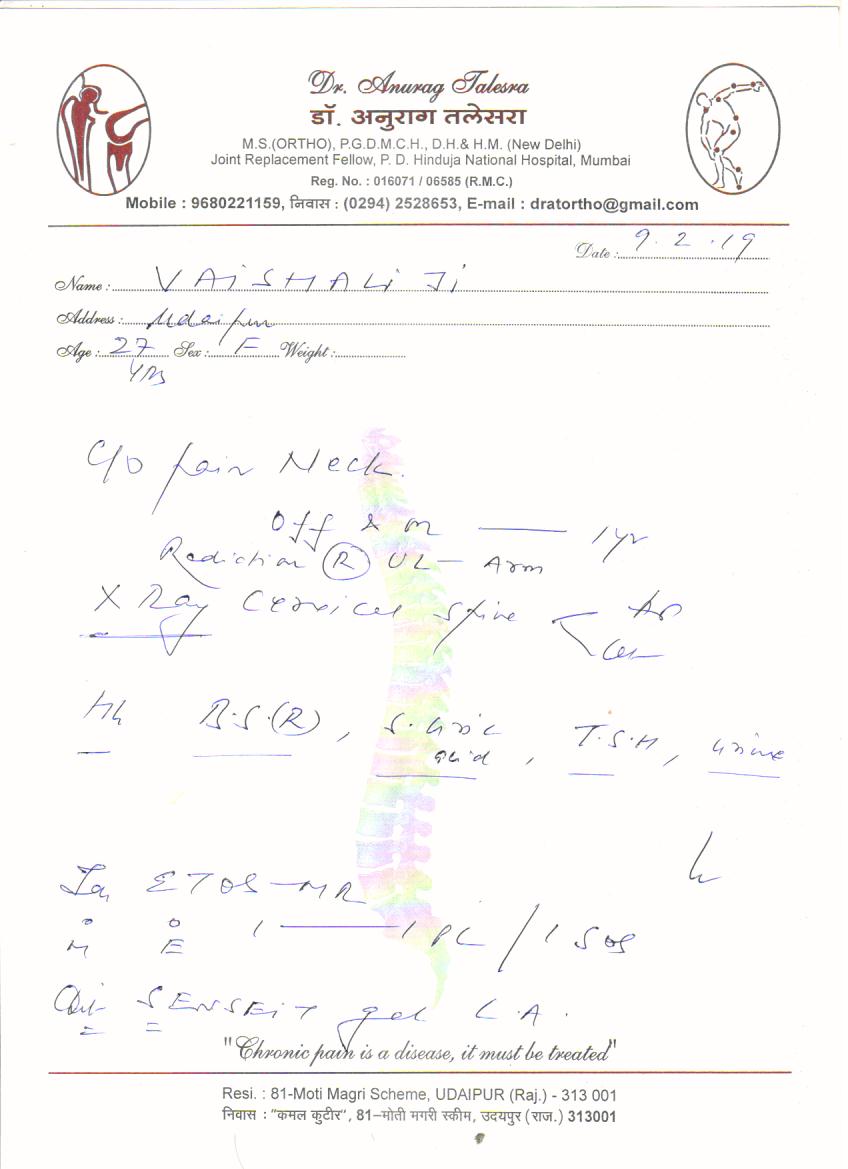 Dr. Anurag Talesra
डॉ. अनुराग तलेसरा
M.S.(ORTHO), P.G.D.M.C.H., D.H.& H.M. (New Delhi)
Joint Replacement Fellow, P. D. Hinduja National Hospital, Mumbai
Reg. No. : 016071 / 06585 (R.M.C.)
Mobile : 9680221159, निवास : (0294) 2528653, E-mail : dratortho@gmail.com
Date : 9.2.19
Name : VAISHALI Ji
Address : Udaipur
Age : 27 Sex : F Weight :
Yrs
C/o pain Neck.
Off & on — 1yr
Radiction (R) UL — Arm
X Ray Cervical Spine < AP
Hb B.S.(R), S. Uric
acid, T.S.H, Urine
ETOS-MR
1 — 1 PC / 1 SOS
M E
SENSEIT gel L.A.
"Chronic pain is a disease, it must be treated"
Resi. : 81-Moti Magri Scheme, UDAIPUR (Raj.) - 313 001
निवास : "कमल कुटीर", 81–मोती मगरी स्कीम, उदयपुर (राज.) 313001